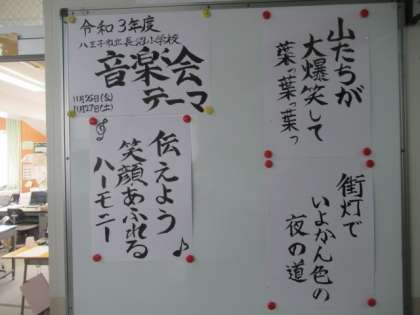 令和3年度
八王子市立長沼小学校
音楽会
テーマ
11月26日(金)
11月27日(土)
伝えよう
笑顔あふれる
ハーモニー
山たちが
大爆笑して
葉、葉っ葉っ
街灯で
いよかん色の
夜の道